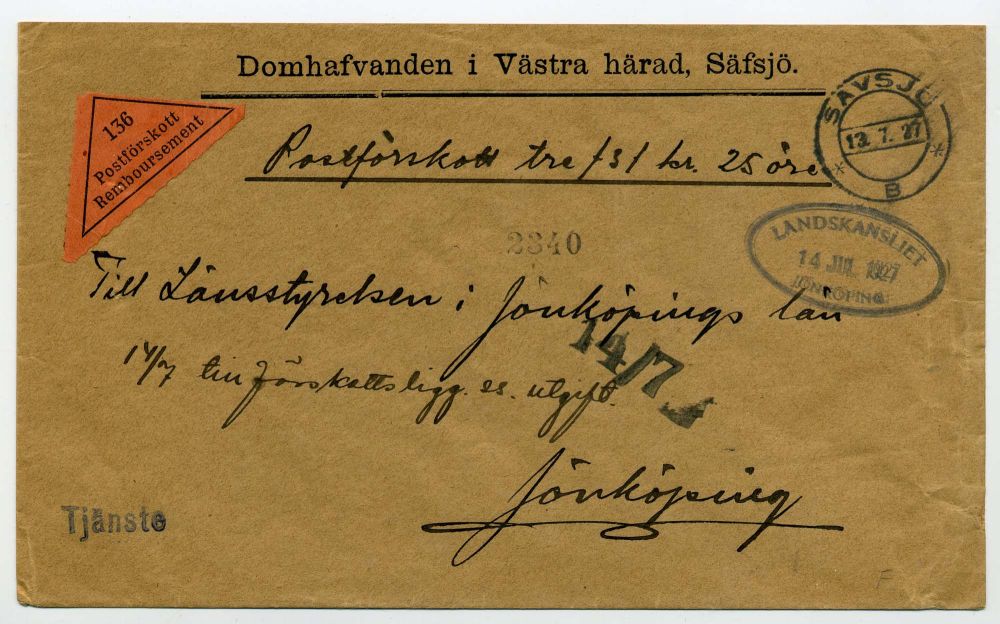 Domhafvanden i Västra härad, Säfsjö.
SÄVSJÖ
13.7.27
B
136
Postförskott
Remboursement
Postförskott tre /3/ kr. 25 öre
LANDSKANSLIET
14 JUL. 1927
JÖNKÖPING
2340
Till Länsstyrelsen i Jönköpings län
14/7
14/7 förskottsligg. ss. utgift.
Jönköping
Tjänste
F